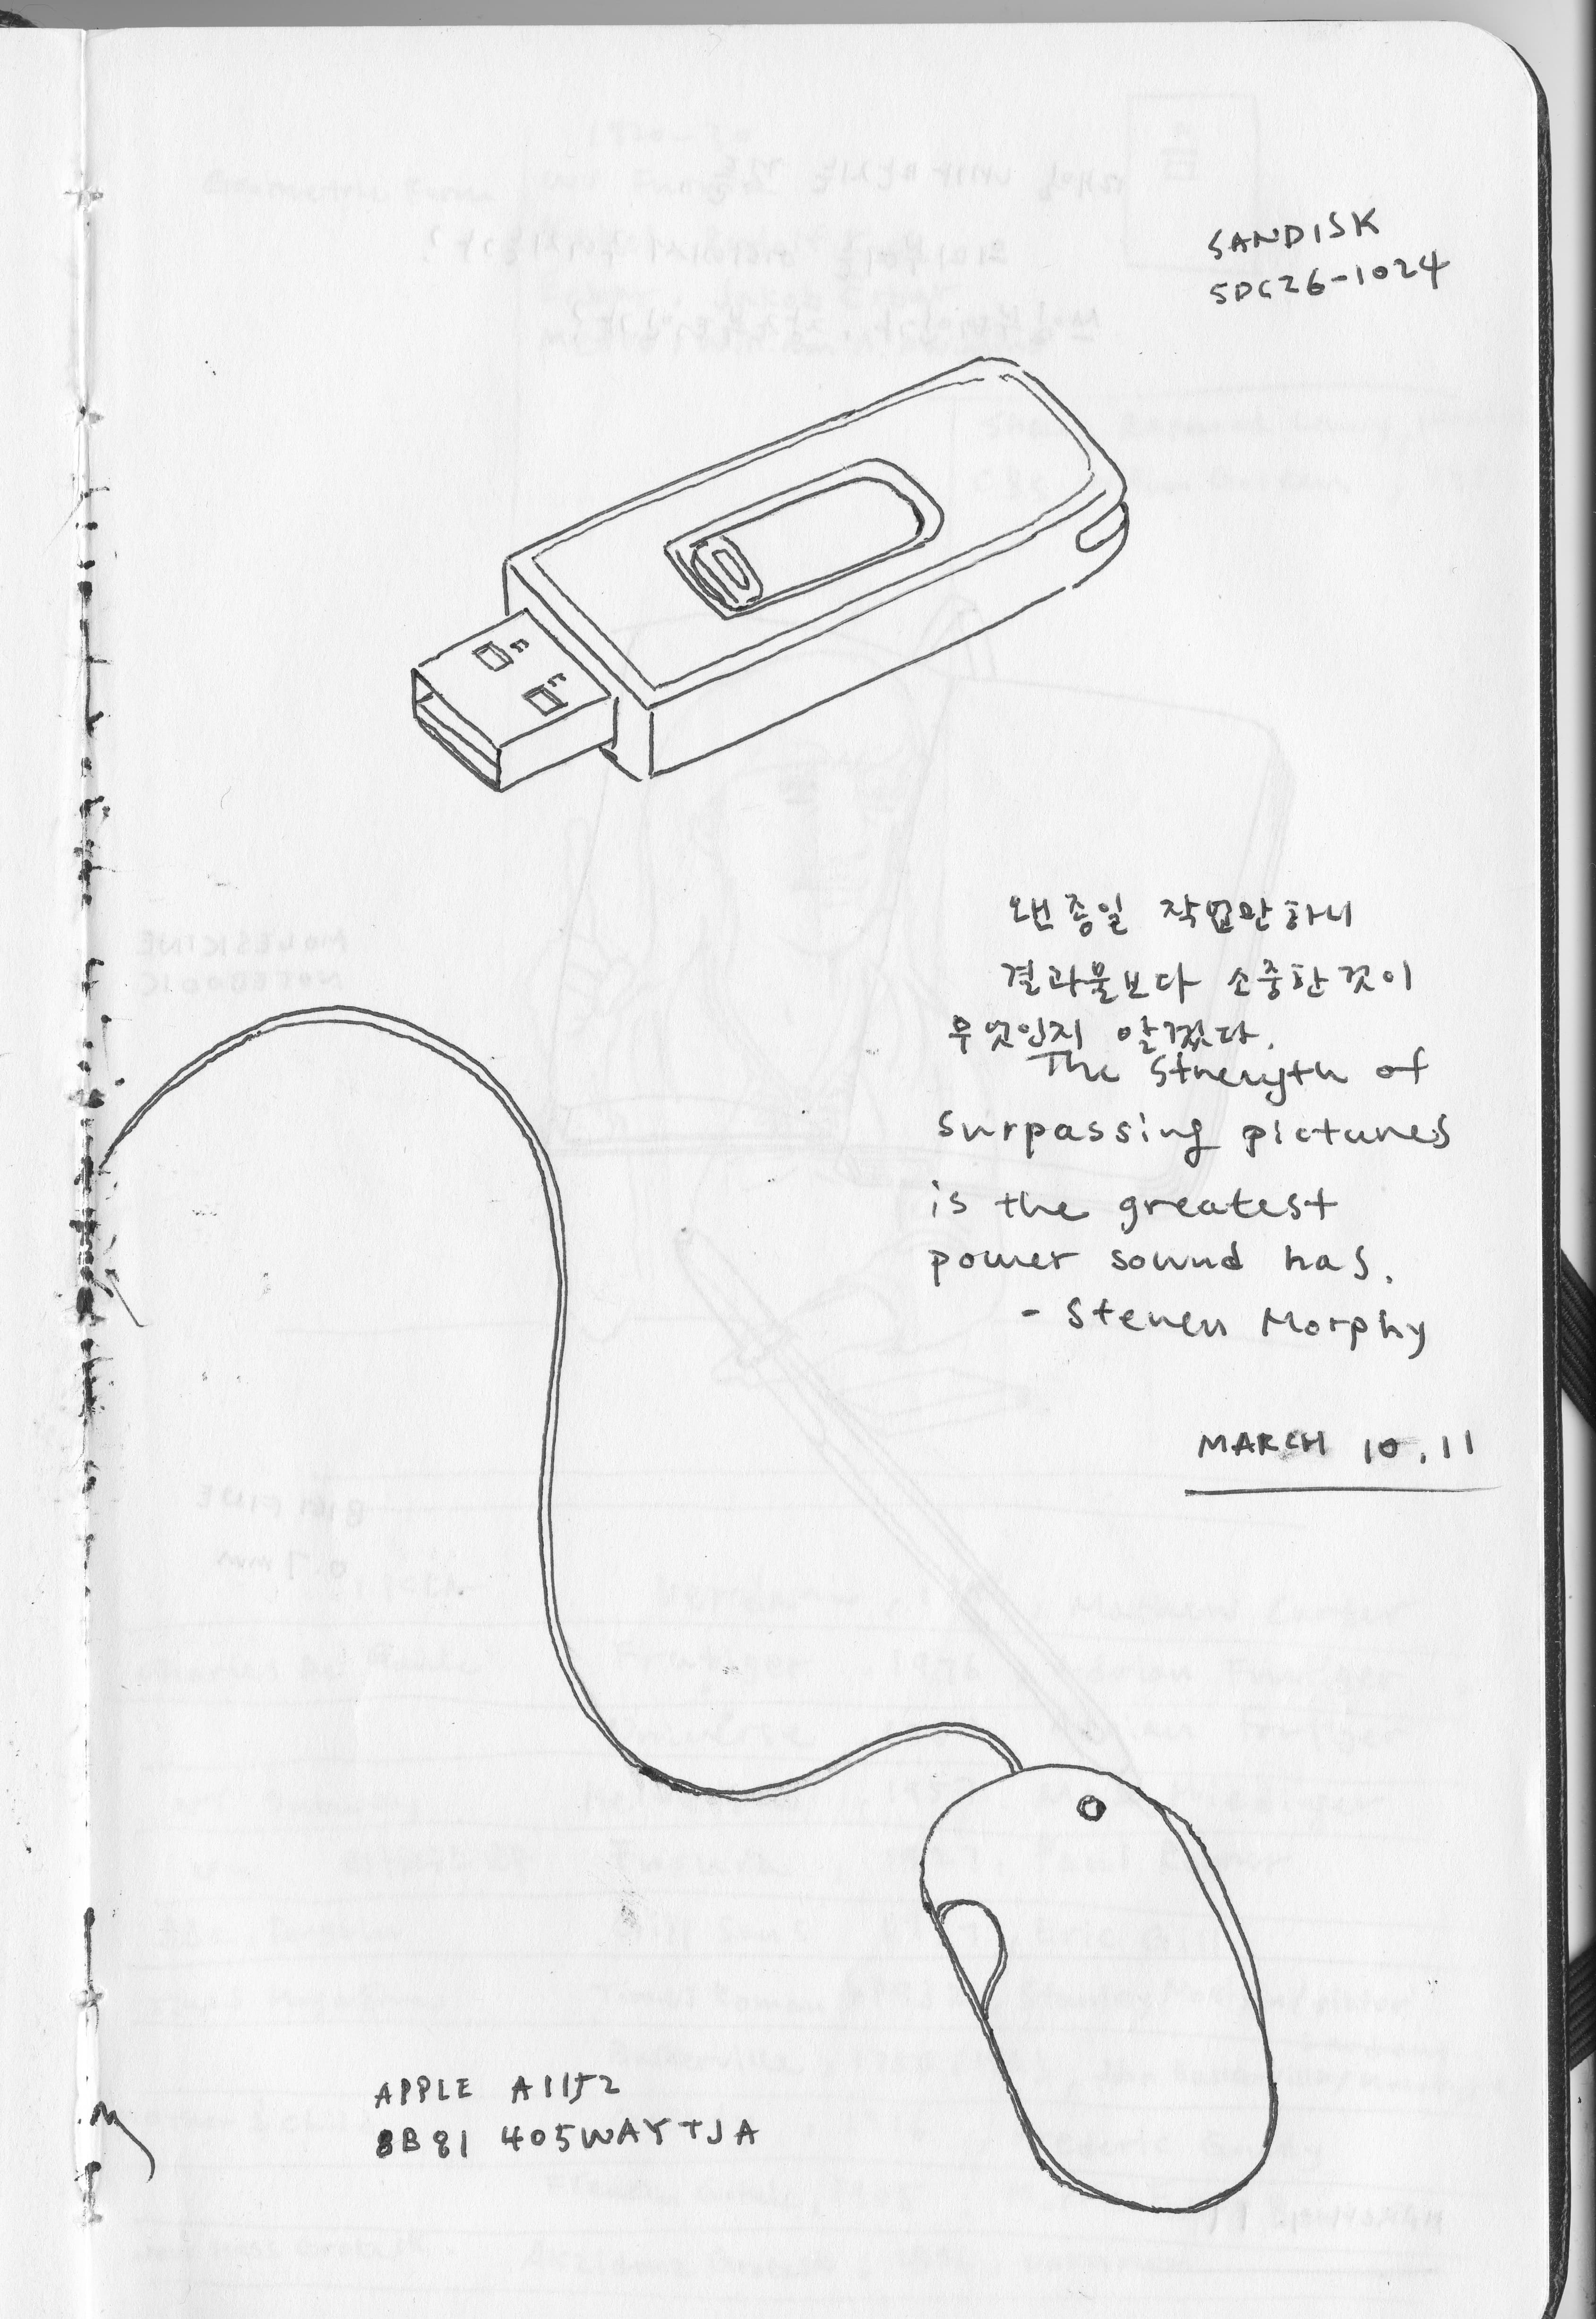 SANDISK
SDCZ6-1024
왠종일 작업만하니
결과물보다 소중한것이
무엇인지 알겠다.
The Strength of
surpassing pictures
is the greatest
power sound has.
- Steven Morphy
MARCH 10, 11
APPLE A1152
8B81 405WAYTJA